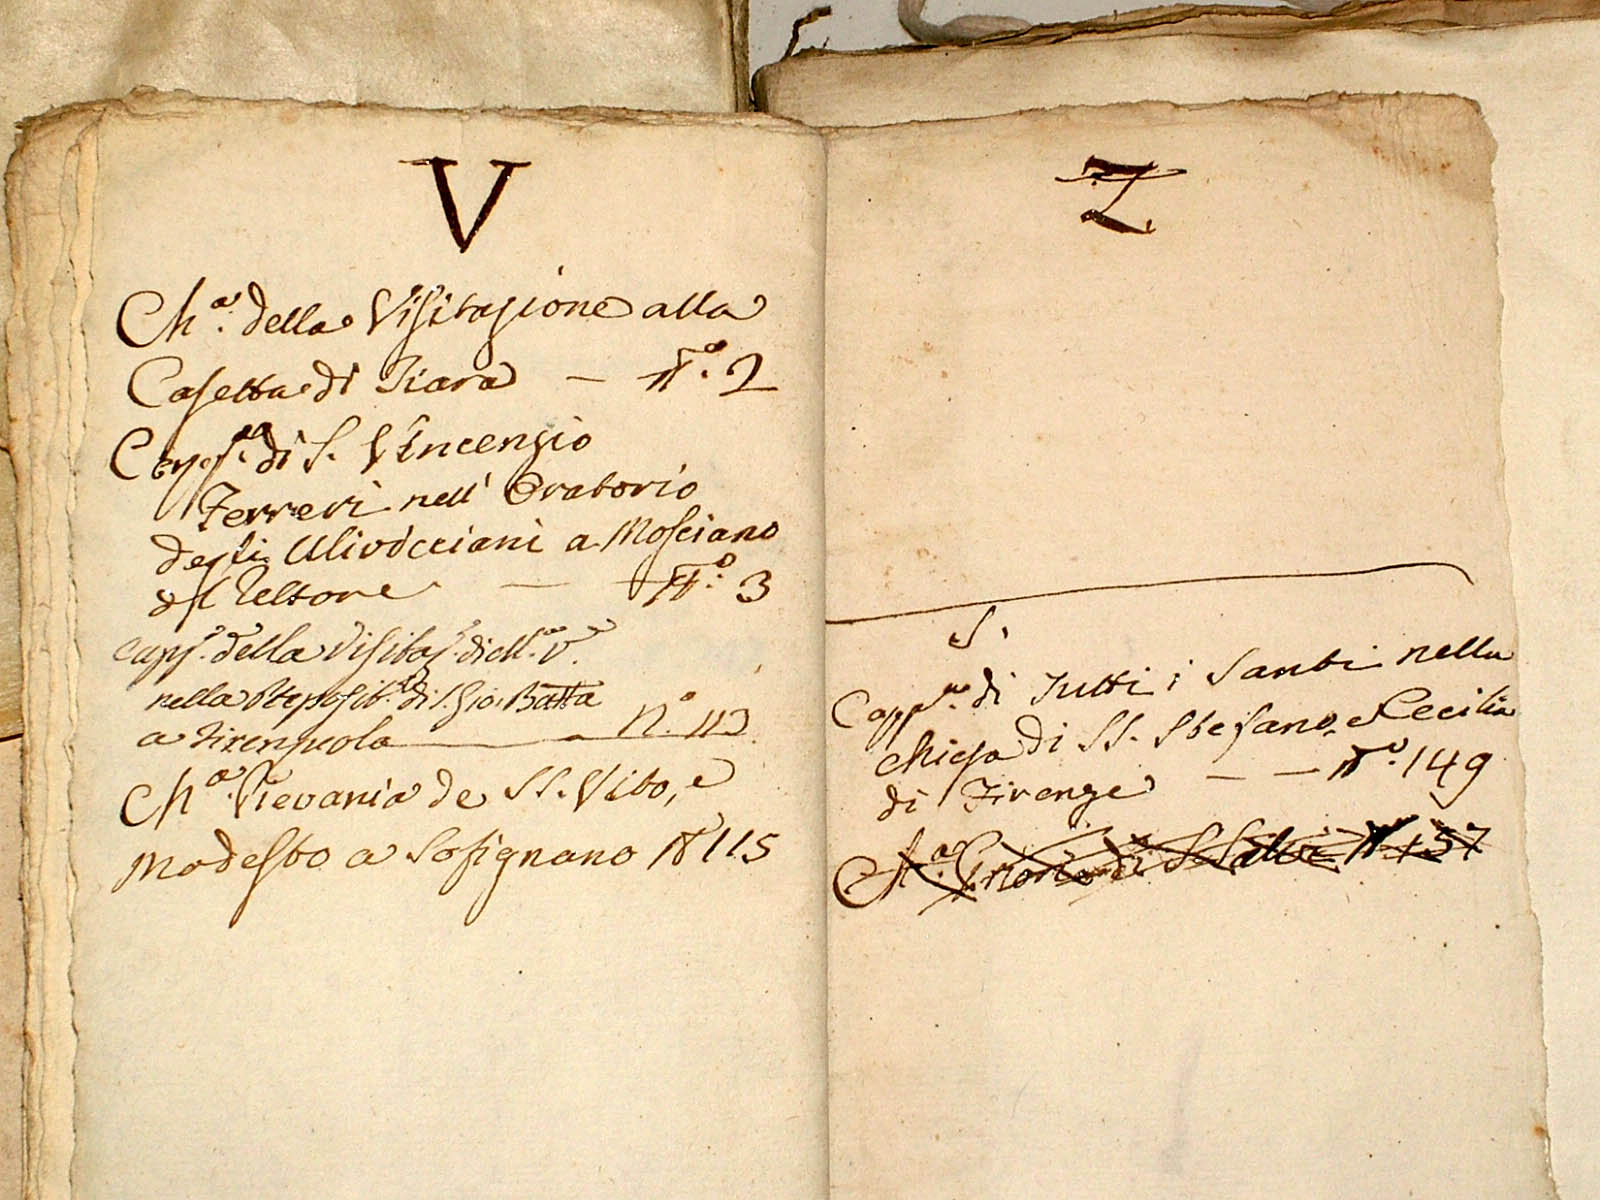 V
Ch.ª della Visitazione alla
Casetta di Tiara — N.º 2
Capp.ª di S. Vincenzio
Ferreri nell' Oratorio
degli Ulivicciani a Mosciano
N.º 3
Capp.ª della Visitaz.e di M.ª V.e
nella di S. Gio: Batta
a Firenzuola N.º 113
Ch.ª Pievania de SS. Vito, e
Modesto a Sofignano N 115
Z.
S.
Capp.na di Tutti i Santi nella
Chiesa di SS. Stefano, e Cecilia
di Firenze — — N.º 149
Ch.ª Prioria di S. Salvi N 157